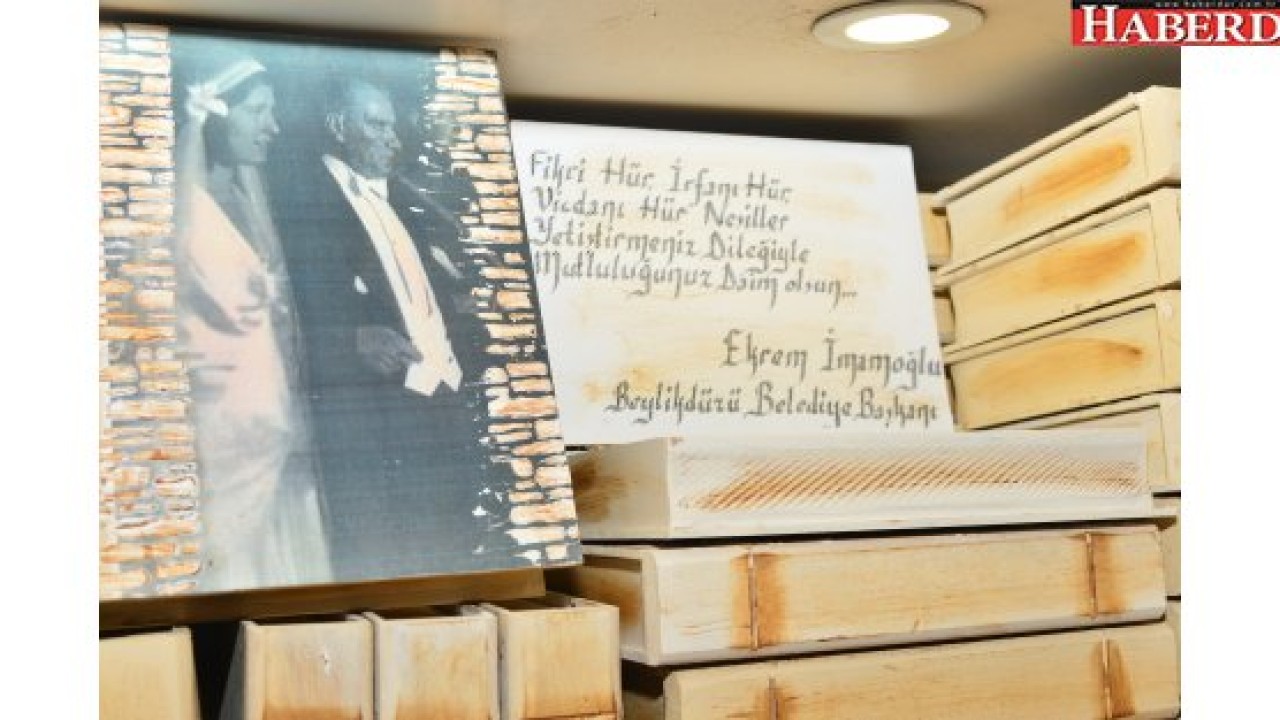 www.haberdar.com.tr
HABERD
Fikri Hür, İrfanı Hür,
Vicdanı Hür Nesiller
Yetiştirmeniz Dileğiyle
Mutluluğunuz Daim olsun...
Ekrem İmamoğlu
Beylikdüzü Belediye Başkanı